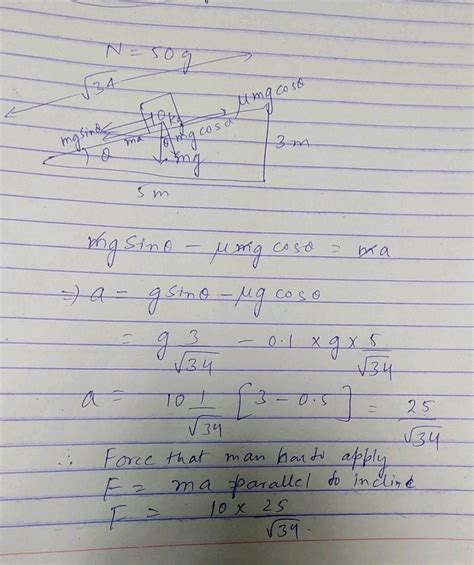 N = 50g
√34
μmgcosθ
mgsinθ
10kg
ma
θ
θ
mgcosθ
mg
3m
5 m
mgsinθ - μmgcosθ = ma
⇒ a = gsinθ - μgcosθ
= g 3/√34 - 0.1 × g × 5/√34
a = 10 1/√34 [3 - 0.5] = 25/√34
∴ Force that man has to apply
F = ma parallel to incline
F = 10 × 25/√34.